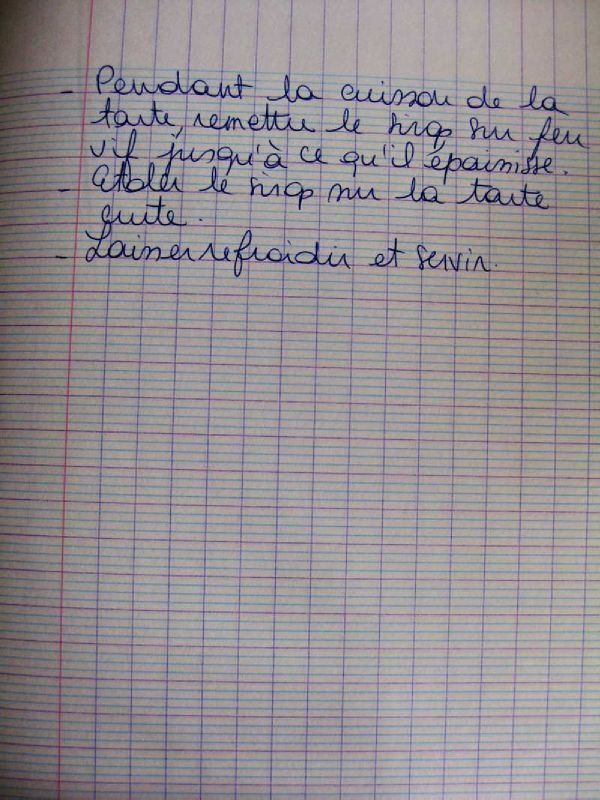 - Pendant la cuisson de la
tarte, remettre le sirop sur feu
vif jusqu'à ce qu'il épaissise.
- Etaler le sirop sur la tarte
cuite.
- Laisser refroidir et servir.